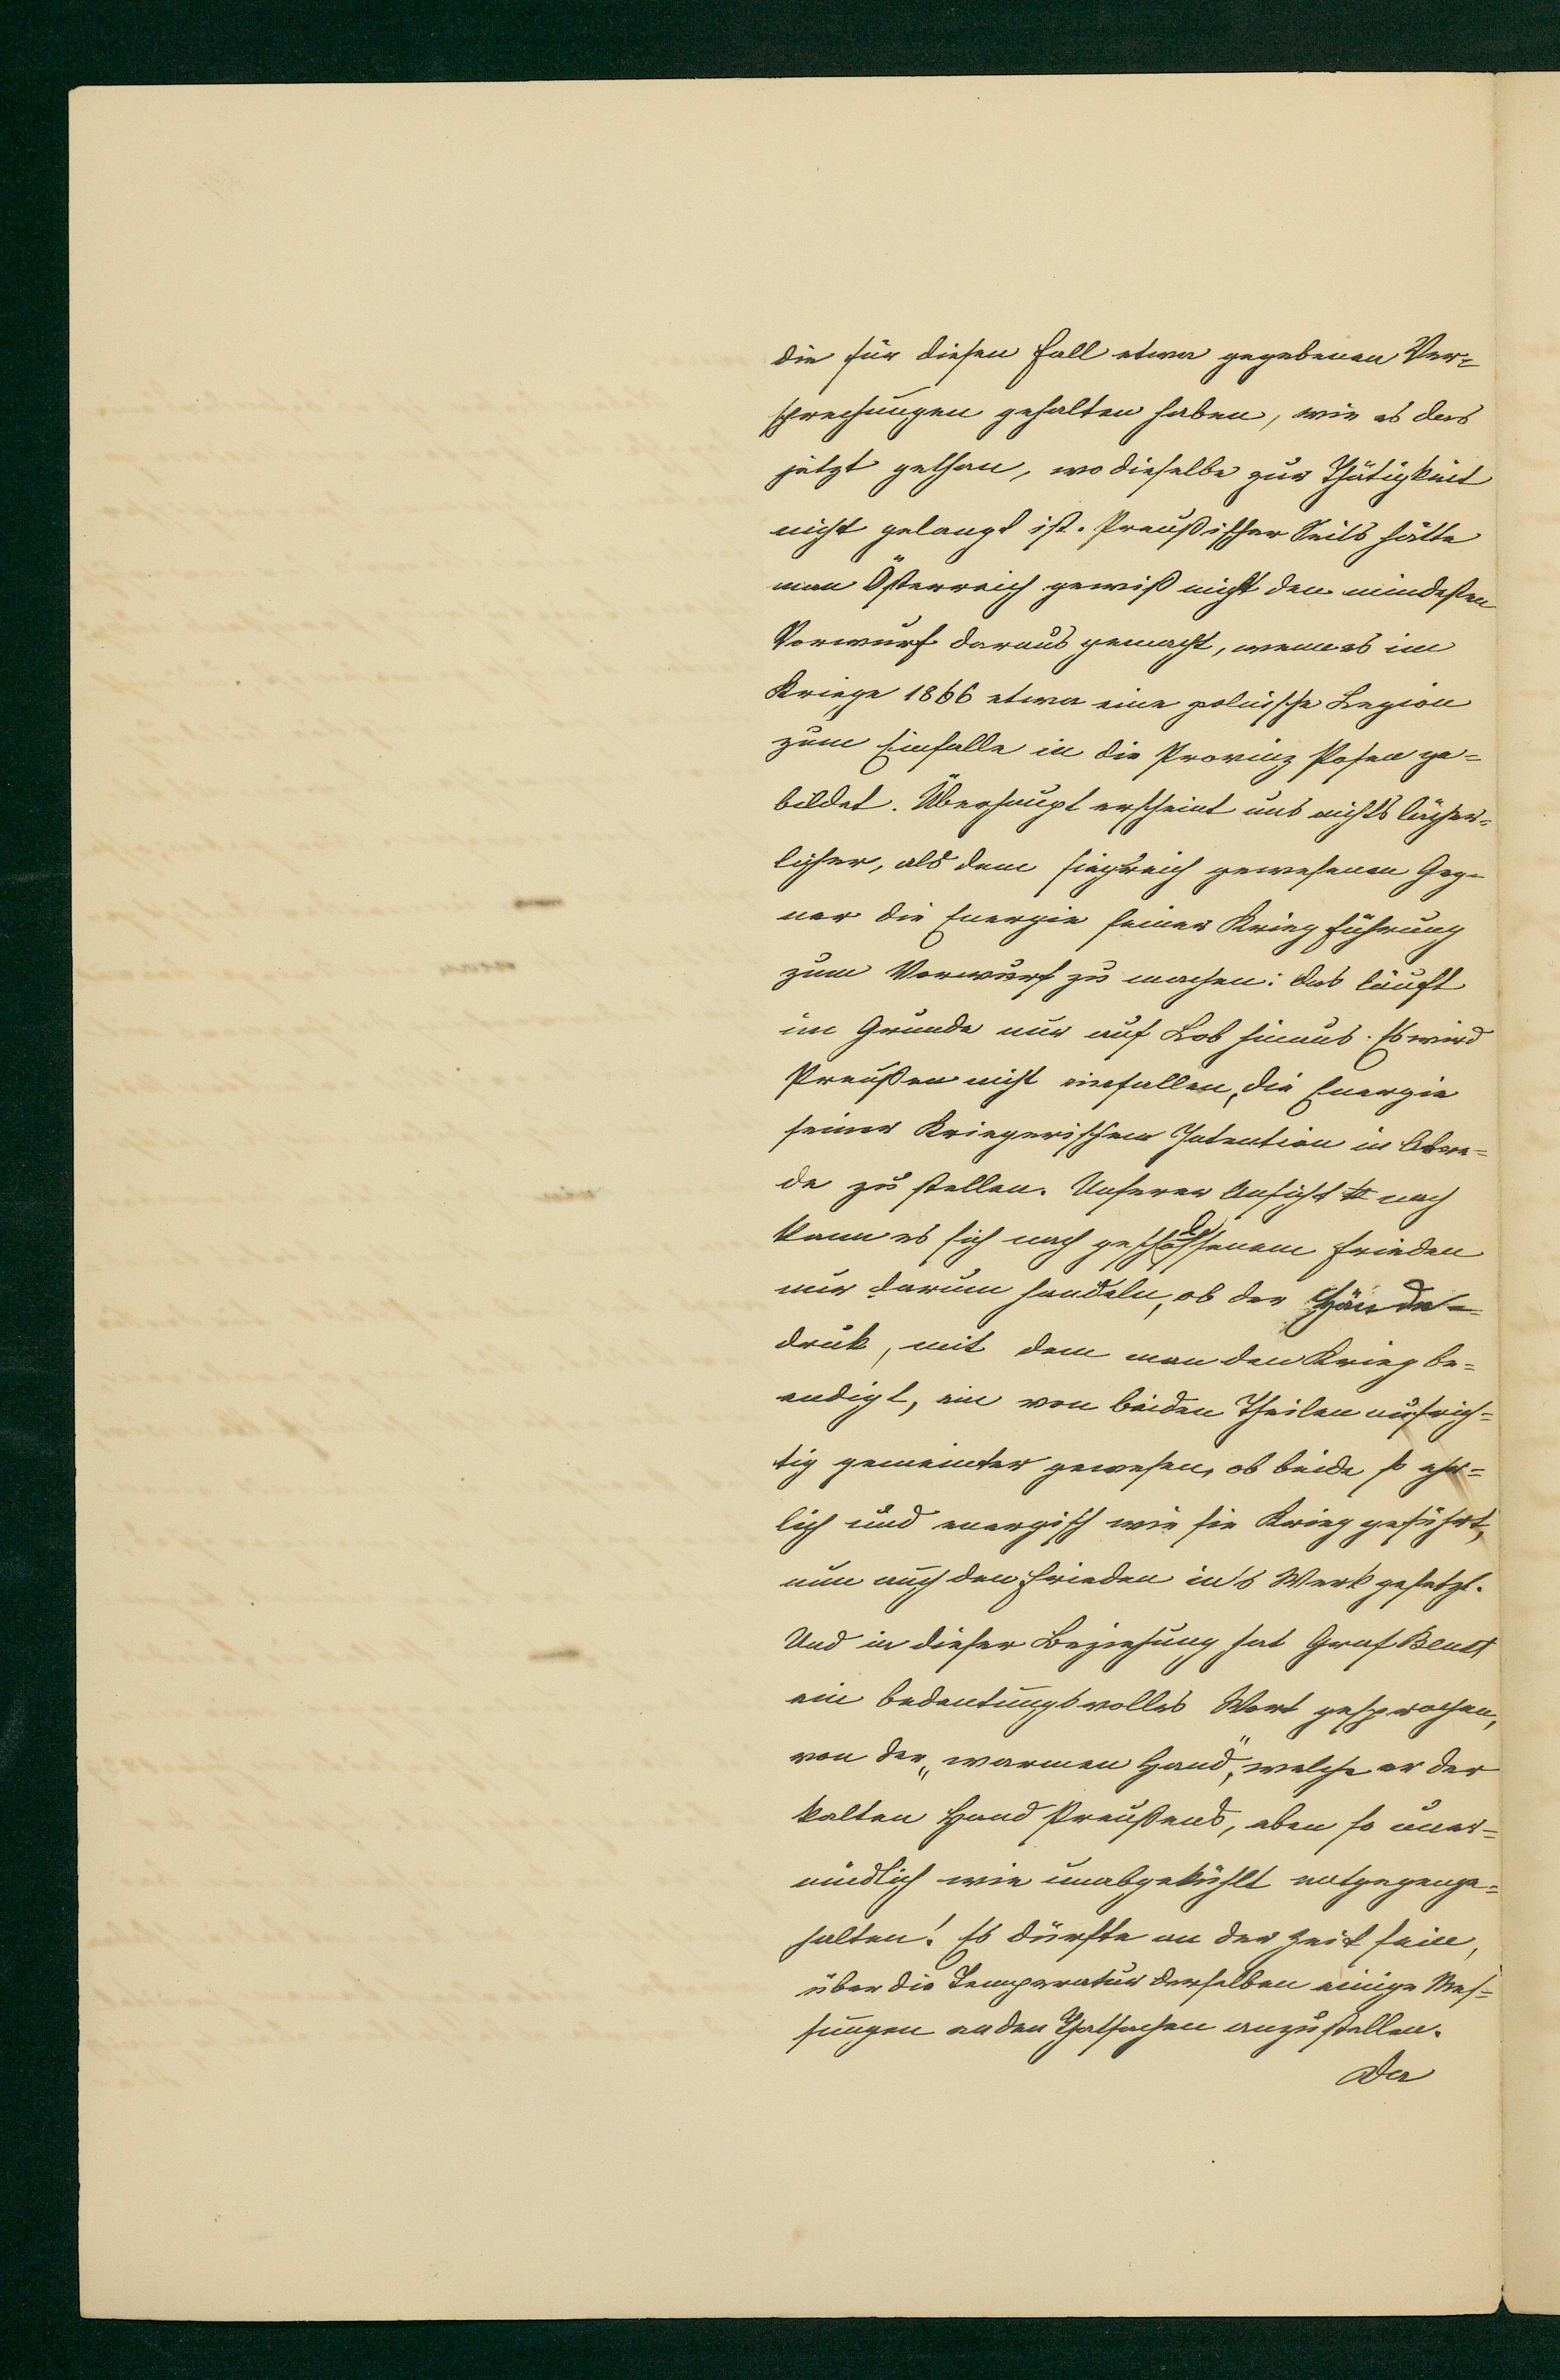 die für diesen Fall etwa gegebenen Ver-
sprechungen gehalten haben, wie es das
jetzt gethan, wo dieselbe zur Thätigkeit
nicht gelangt ist. Preußischer Seits hätte
man Österreich gewiß nicht den mindesten
Vorwurf daraus gemacht, wenn es im
Kriege 1866 etwa eine polnische Legion
zum Einfalle in die Provinz Posen ge-
bildet. Überhaupt erscheint uns nichts lächer-
licher, als dem siegreich gewesenen Geg-
ner die Energie seiner Kriegführung
zum Vorwurf zu machen: das läuft
im Grunde nur auf Lob hinaus. Es wird
Preußen nicht einfallen, die Energie
seiner Kriegerischen Intention in Abre-
de zu stellen. Unserer Ansicht nach
kann es sich nach geschlossenem Frieden
nur darum handeln, ob der Hände-
druk, mit dem man den Krieg be-
endigt, ein von beiden Theilen aufrich-
tig gemeinter gewesen, ob beide so ehr-
lich und energisch wie sie Krieg geführt,
nun auch den Frieden in's Werk gesetzt.
Und in dieser Beziehung hat Graf Beust
ein bedeutungsvolles Wort gesprochen,
von der „warmen Hand", welche er der
kalten Hand Preußens, eben so uner-
müdlich wie unabgekühlt entgegenge-
halten! Es dürfte an der Zeit sein,
über die Temperatur derselben einige Mes-
sungen an den Thatsachen anzustellen.
Der